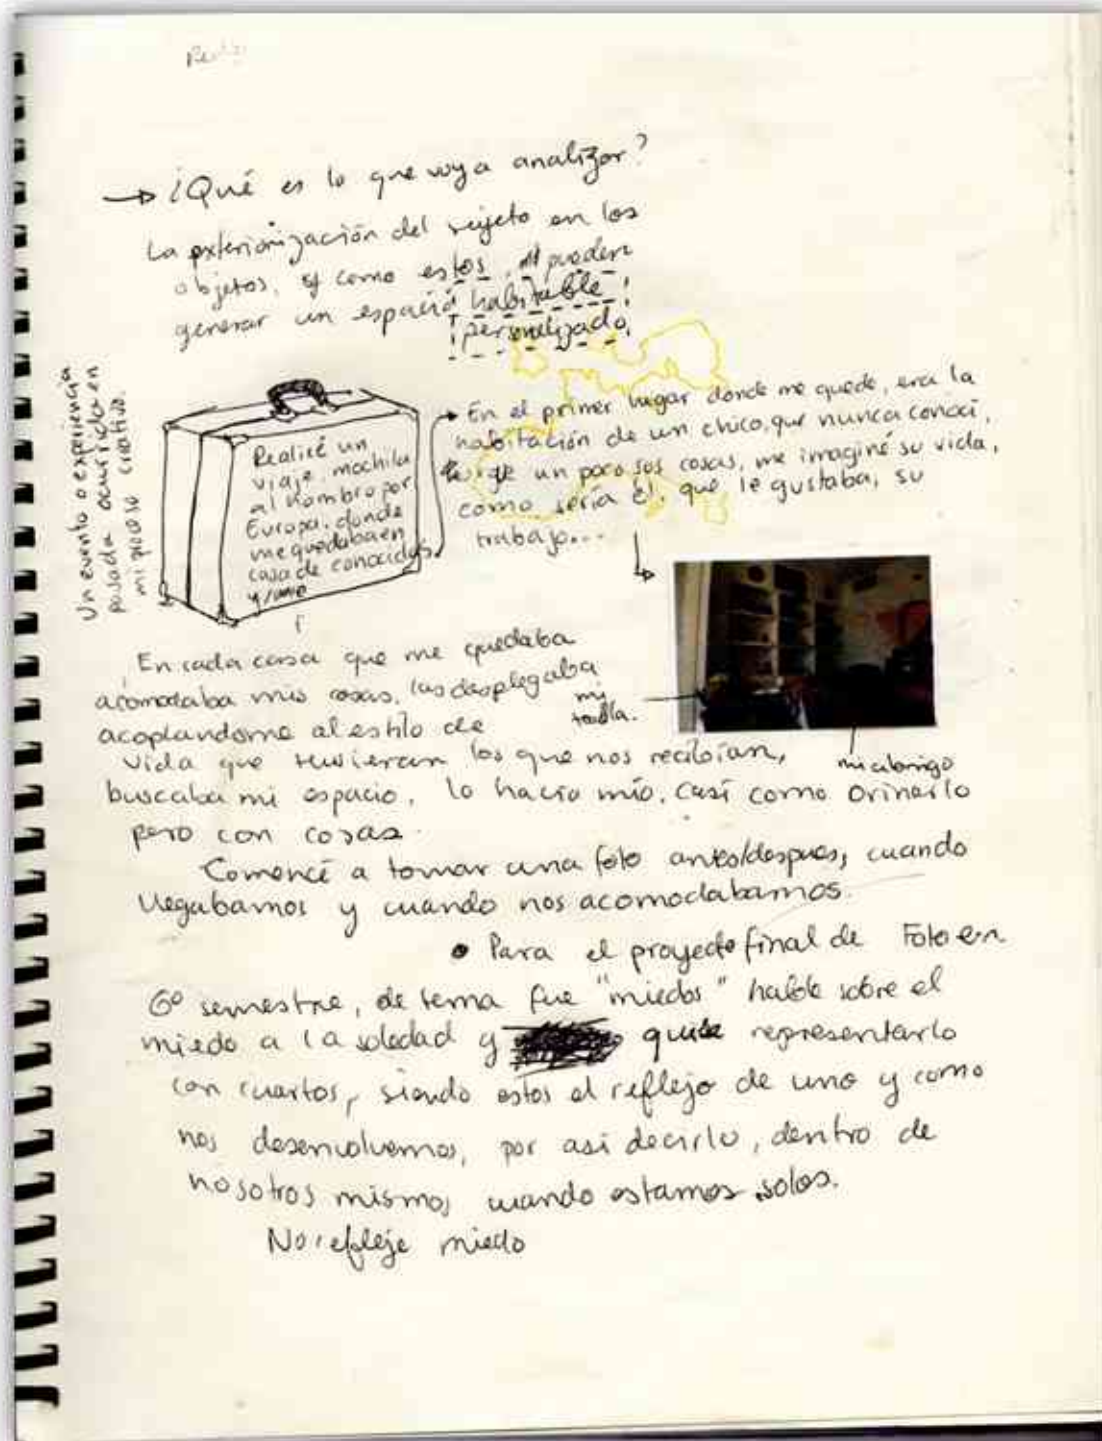 → ¿Qué es lo que voy a analizar?
La exteriorización del sujeto en los
objetos, y como estos, pueden
generar un espacio habitable
personalizado.
Un evento o experiencia
pasada ocurrida en
mi proceso creativo.
Realicé un
viaje, mochila
al hombro por
Europa, donde
me quedaba en
casa de conocidos
y/u
→ En el primer lugar donde me quede, era la
habitación de un chico, que nunca conocí,
un poco sus cosas, me imaginé su vida,
como sería él, que le gustaba, su
trabajo...
En cada casa que me quedaba
acomodaba mis cosas, las desplegaba
acoplandome al estilo de
vida que tuvieran los que nos recibían,
buscaba mi espacio, lo hacía mío. casi como orinarlo
pero con cosas.
mi
toalla.
mi abrigo
Comencé a tomar una foto antes/despues, cuando
llegabamos y cuando nos acomodabamos.
• Para el proyecto final de Foto en
6º semestre, de tema fue "miedos" hable sobre el
miedo a la soledad y quise representarlo
con cuartos, siendo estos el reflejo de uno y como
nos desenvolvemos, por asi decirlo, dentro de
nosotros mismos cuando estamos solos.
No refleje miedo